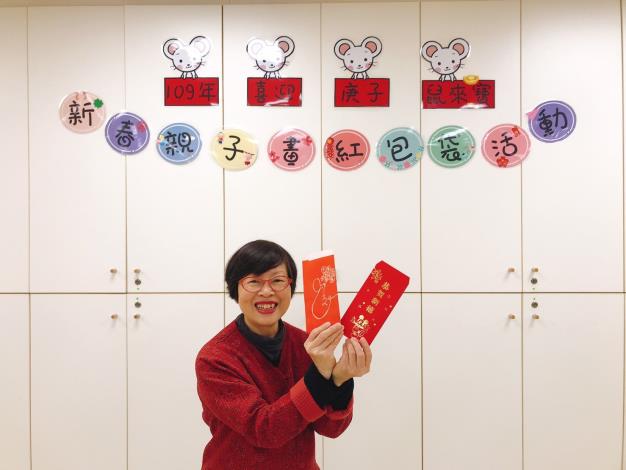 109年 喜迎 庚子 鼠來寶
新春親子畫紅包袋活動
恭賀新禧